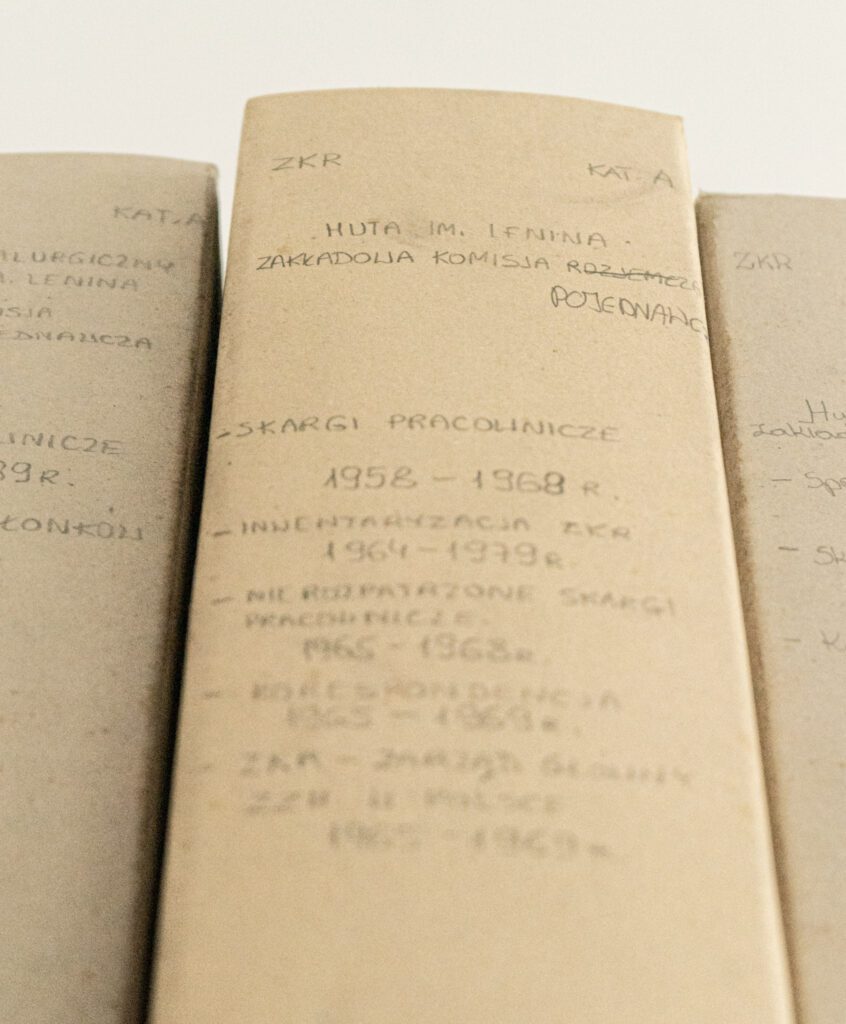 KAT. A
ALURGICZNY
LENINA
SJA
EDNAWCZA
WNICZE
89 R.
ŁONKÓW
ZKR
KAT. A
HUTA IM. LENINA
ZAKŁADOWA KOMISJA ROZJEMCZ
POJEDNAWC
- SKARGI PRACOWNICZE
1958 - 1968 R.
- INWENTARYZACJA ZKR
1964 - 1979 R.
- NIEROZPATRZONE SKARGI
PRACOWNICZE.
1965 - 1968 R.
- KORESPONDENCJA
1965 - 1969 R.
- ZKR - ZARZĄD GŁÓWNY
ZZH W POLSCE
1965 - 1969 R.
ZKR
Hu
Zakład
- Sp
- Sk
- K